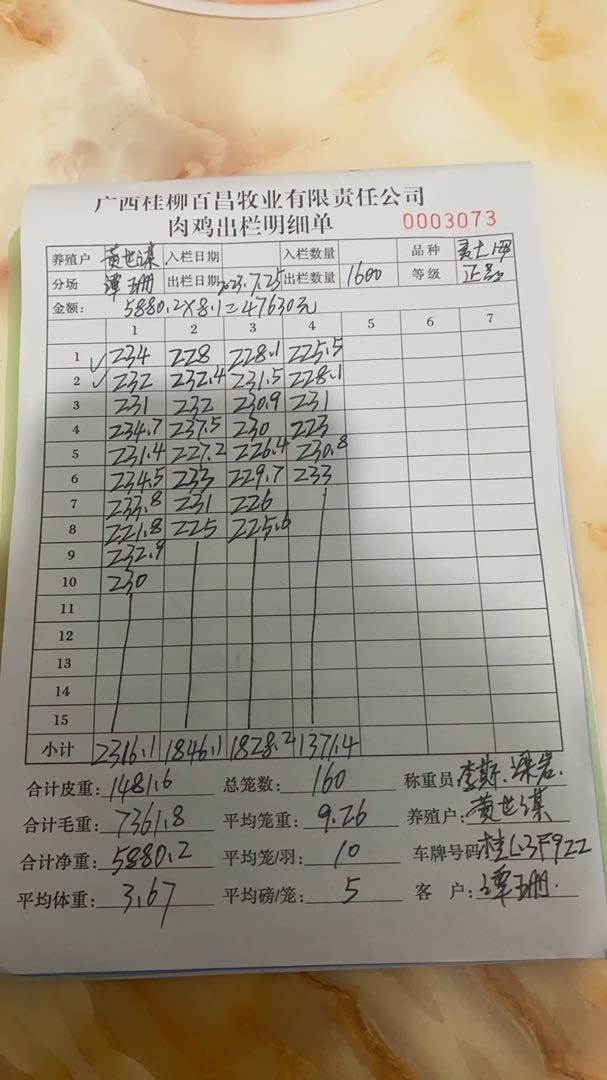 广西桂柳百昌牧业有限责任公司
肉鸡出栏明细单 0003073
养殖户 黄世谋 入栏日期 入栏数量 品种
分场 谭玉珊 出栏日期 2023.7.25 出栏数量 1600 等级 正品
金额: 5880.2×8.1=47630元
1 2 3 4 5 6 7
1 ✓ 234 228 228.1 225.5
2 ✓ 232 232.4 231.5 228.1
3 231 232 230.9 231
4 234.7 237.5 230 223
5 231.4 227.2 226.4 230.8
6 234.5 233 229.7 233
7 233.8 231 226
8 221.8 225 225.6
9 232.9
10 230
11
12
13
14
15
小计 2316.1 1846.1 1828.2 1371.4
合计皮重: 1481.6 总笼数: 160 称重员: 李斯.
合计毛重: 7361.8 平均笼重: 9.26 养殖户: 黄世谋
合计净重: 5880.2 平均笼/羽: 10 车牌号码
平均体重: 3.67 平均磅/笼: 5 客 户: 谭玉珊.